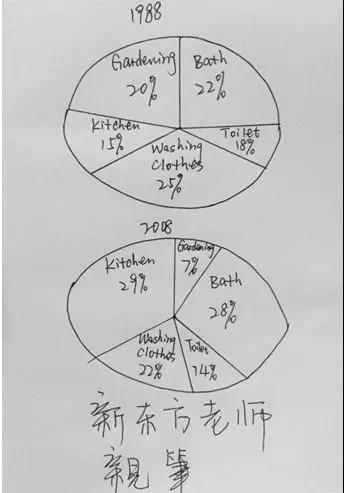 1988
Gardening
20%
Bath
22%
Kitchen
15%
Toilet
18%
Washing
Clothes
25%
2008
Kitchen
29%
Gardening
7%
Bath
28%
Washing
Clothes
22%
Toilet
14%
新东方老师
親筆